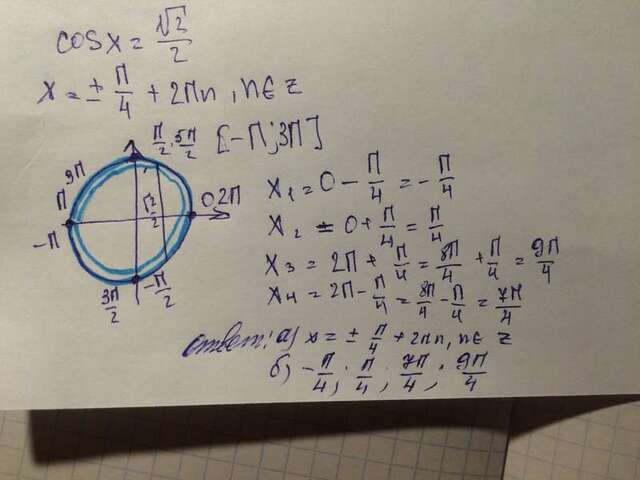 cosx = √2/2
x = ± π/4 + 2πn, n∈z
π/2, 5π/2 [-π; 3π]
3π
π
-π
√2/2
0 2π
3π/2
-π/2
x₁ = 0 - π/4 = -π/4
x₂ = 0 + π/4 = π/4
x₃ = 2π + π/4 = 8π/4 + π/4 = 9π/4
x₄ = 2π - π/4 = 8π/4 - π/4 = 7π/4
ответ: а) x = ± π/4 + 2πn, n∈z
б) -π/4; π/4, 7π/4; 9π/4